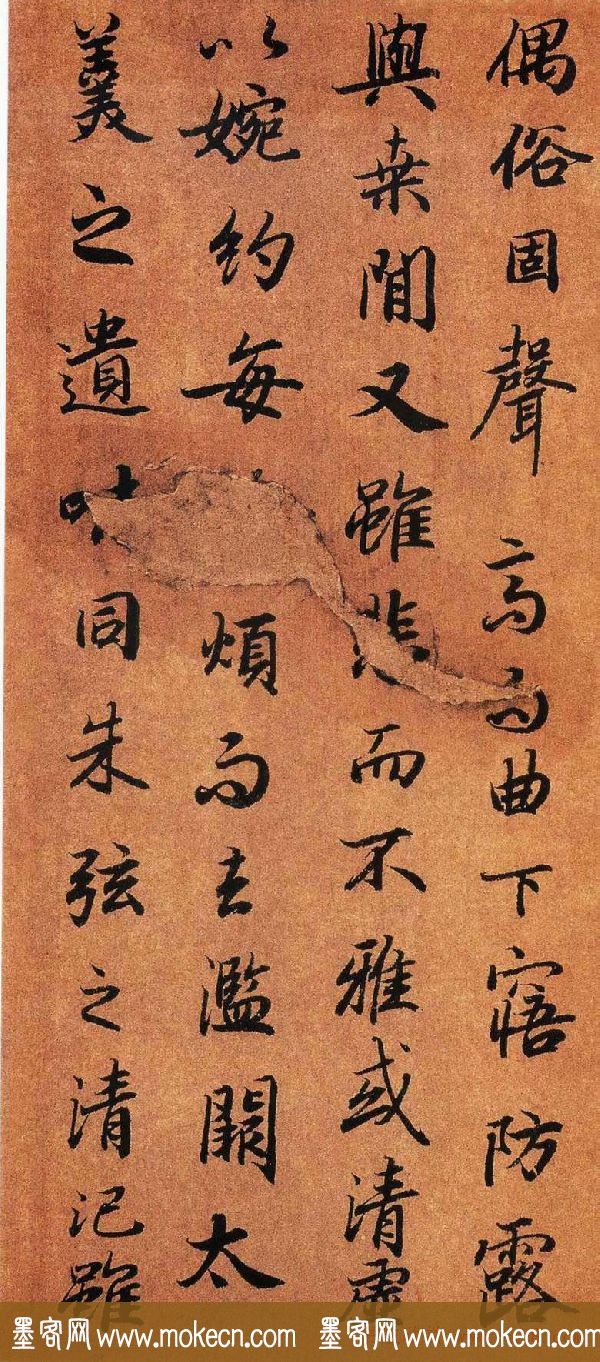 偶俗固聲高而曲下寤防露
與桒間又雖悲而不雅或清虛
以婉約每煩而去濫闕太
羹之遺味同朱弦之清汜雖
墨客网 www.mokecn.com 墨客网 www.mokecn.com